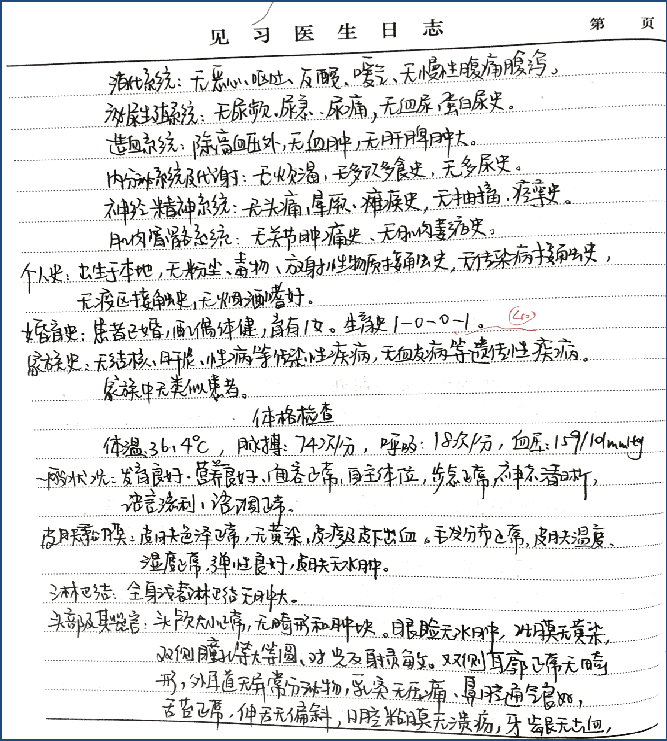 见习医生日志 第 页
消化系统：无恶心、呕吐、反酸、嗳气、无慢性腹痛腹泻。
泌尿生殖系统：无尿频、尿急、尿痛，无血尿、蛋白尿史。
造血系统：除高血压外，无血肿，无肝脾肿大。
内分泌系统及代谢：无烦渴，无多饮多食史，无多尿史。
神经精神系统：无头痛、晕厥、瘫痪史，无抽搐、痉挛史。
肌肉骨骼系统：无关节肿痛史、无肌肉萎缩史。
个人史：出生于本地，无粉尘、毒物、放射性物质接触史，无传染病接触史，
无疫区接触史，无烟酒嗜好。
婚育史：患者已婚，配偶体健，育有1女。生育史1-0-0-1。
家族史：无结核、肝炎、性病等传染性疾病，无血友病等遗传性疾病。
家族中无类似患者。
体格检查
体温：36.4℃，脉搏：74次/分，呼吸：18次/分，血压：159/101mmHg
一般状况：发育良好、营养良好、面容正常，自主体位，步态正常，神志清晰，
语言流利，语调正常。
皮肤黏膜：皮肤色泽正常，无黄染、皮疹及皮下出血。毛发分布正常，皮肤温度、
湿度正常，弹性良好，皮肤无水肿。
淋巴结：全身浅表淋巴结无肿大。
头部及其器官：头颅大小正常，无畸形和肿块。眼睑无水肿，巩膜无黄染，
双侧瞳孔等大等圆、对光反射灵敏。双侧耳廓正常无畸
形，外耳道无异常分泌物，乳突无压痛、鼻腔通气良好，
舌苔正常，伸舌无偏斜，口腔粘膜无溃疡，牙龈无出血，